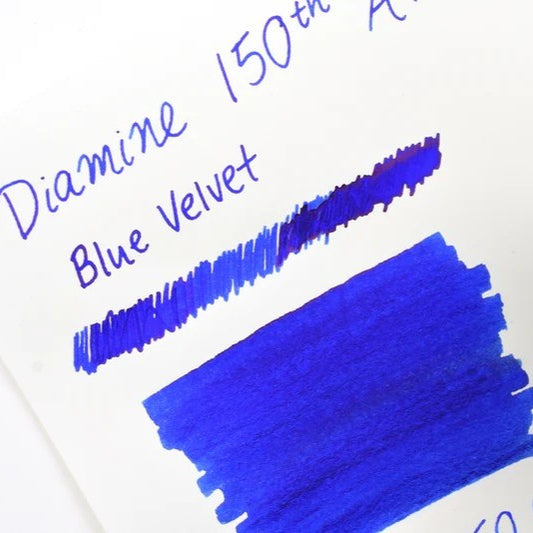 Diamine 150th
Blue Velvet